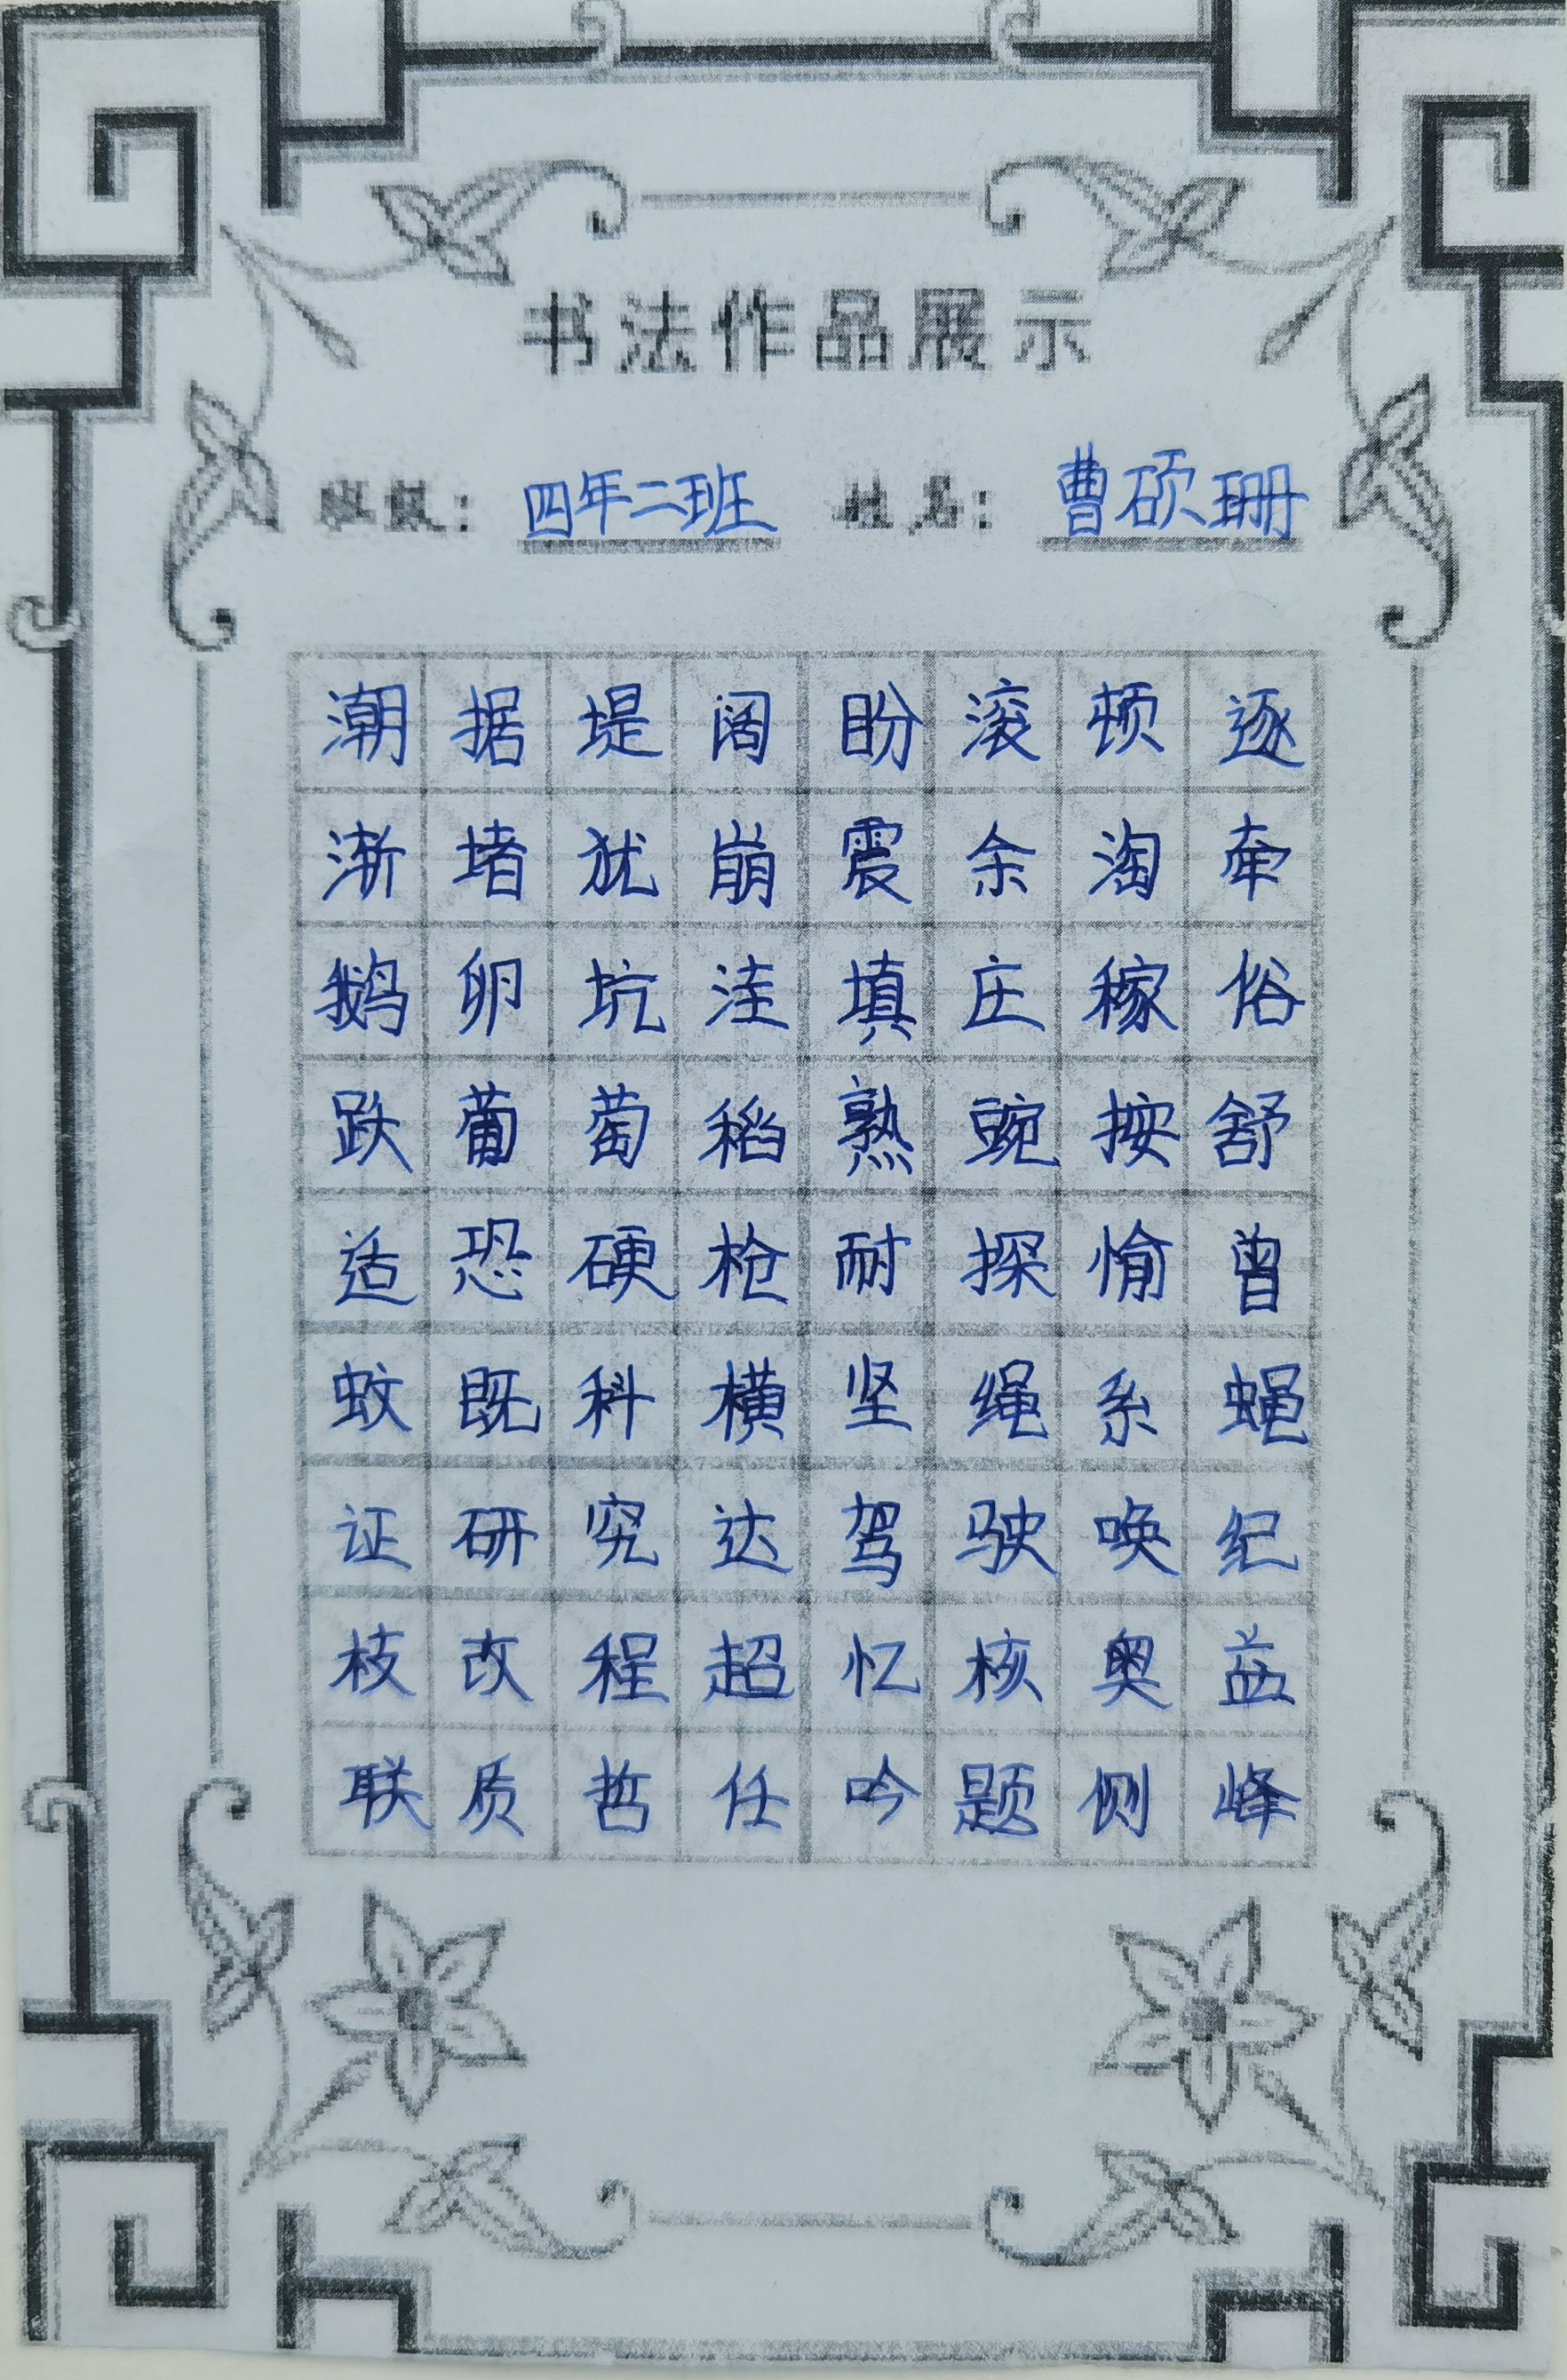 书法作品展示
班级：四年二班 姓名：曹硕珊
潮据堤阔盼滚顿逐
渐堵犹崩震余淘牵
鹅卵坑洼填庄稼俗
跌葡萄稻熟豌按舒
适恐硬枪耐探愉曾
蚊既科横坚绳系蝇
证研究达驾驶唤纪
枝改程超忆核奥益
联质哲任吟题侧峰